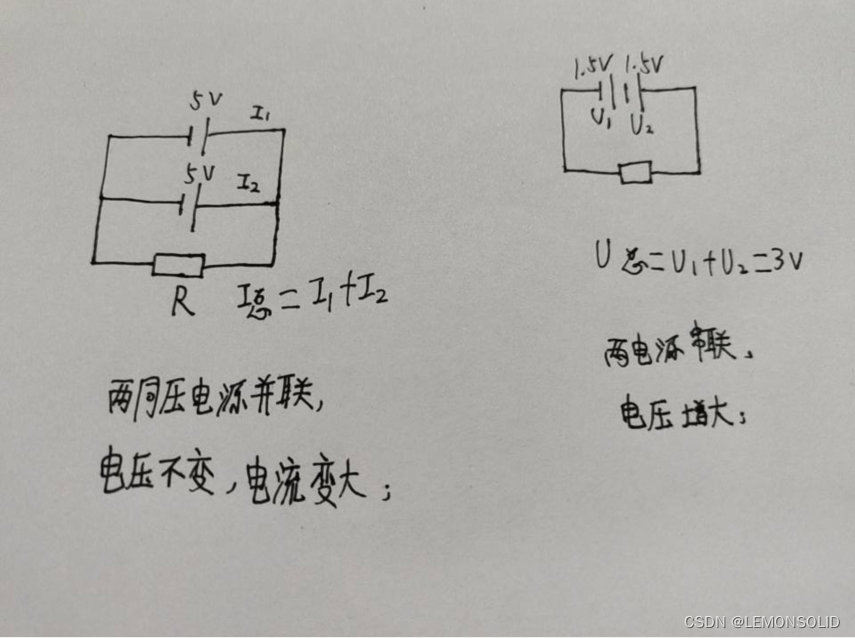 5V
I₁
5V
I₂
R
I总=I₁+I₂
两同压电源并联,
电压不变,电流变大;
1.5V 1.5V
U₁ U₂
U总=U₁+U₂=3V
两电源串联、
电压增大;
CSDN @LEMONSOLID